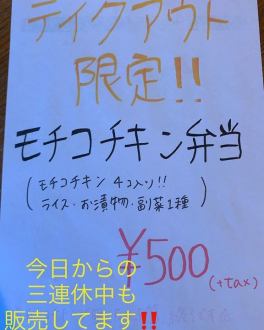 テイクアウト
限定!!
モチコチキン弁当
(モチコチキン 4コ入り!!
ライス・お漬物・副菜1種)
¥500(+tax)
今日からの
三連休中も
販売してます‼️